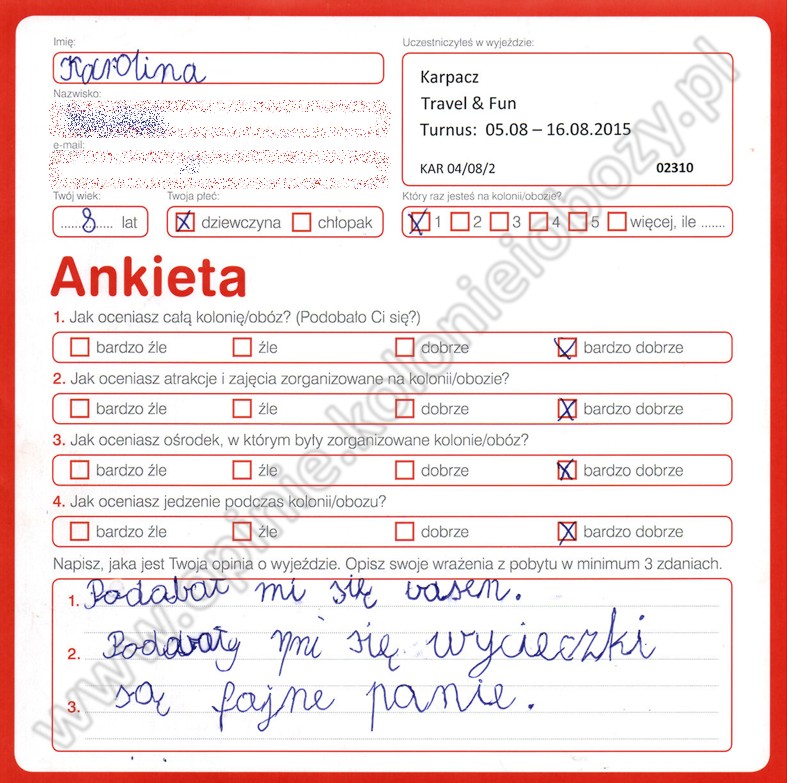 Imię:
Karolina
Uczestniczyłeś w wyjeździe:
Karpacz
Travel & Fun
Turnus: 05.08 – 16.08.2015
KAR 04/08/2 02310
Nazwisko:
e-mail:
Twój wiek: Twoja płeć: Który raz jesteś na kolonii/obozie?
8 lat dziewczyna chłopak 1 2 3 4 5 więcej, ile .......
Ankieta
1. Jak oceniasz całą kolonię/obóz? (Podobało Ci się?)
bardzo źle źle dobrze bardzo dobrze
2. Jak oceniasz atrakcje i zajęcia zorganizowane na kolonii/obozie?
bardzo źle źle dobrze bardzo dobrze
3. Jak oceniasz ośrodek, w którym były zorganizowane kolonie/obóz?
bardzo źle źle dobrze bardzo dobrze
4. Jak oceniasz jedzenie podczas kolonii/obozu?
bardzo źle źle dobrze bardzo dobrze
Napisz, jaka jest Twoja opinia o wyjeździe. Opisz swoje wrażenia z pobytu w minimum 3 zdaniach.
1. Podabał mi się basen.
2. Podobały mi się wycieczki
3. są fajne panie.
www.opinie.kolonieiobozy.pl